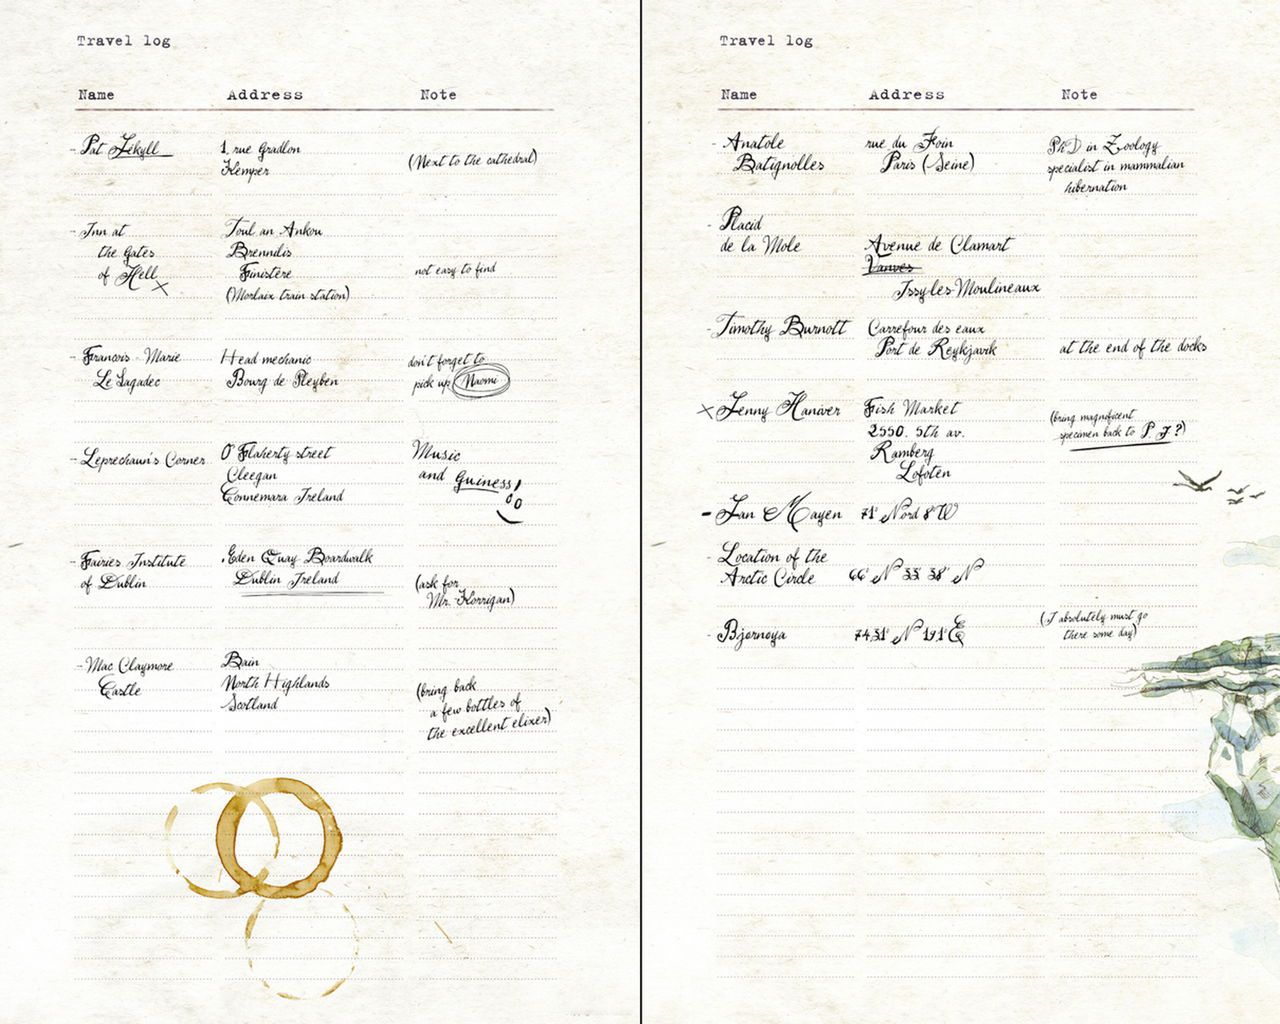 Travel log
Name Address Note
- Pat Jekyll 1, rue Gradlon
Kemper (Next to the cathedral)
- Inn at Toul an Ankou
the Gates Brennilis
of Hell Finistère not easy to find
(Morlaix train station)
- Francois-Marie Head mechanic don't forget to
Le Lagadec Bourg de Pleyben pick up Naomi
- Leprechaun's Corner O'Flaherty street Music
Cleegan and Guiness!
Connemara Ireland
- Fairies Institute Eden Quay Boardwalk
of Dublin Dublin Ireland (ask for
Mr. Korrigan)
- Mac Claymore Bain
Castle North Highlands (bring back
Scotland a few bottles of
the excellent elixer)
Travel log
Name Address Note
- Anatole rue du Foin PhD in Zoology
Batignolles Paris (Seine) specialist in mammalian
hibernation
- Placid
de la Mole Avenue de Clamart
Vanves
Issy-les-Moulineaux
- Timothy Burnott Carrefour des eaux
Port de Reykjavik at the end of the docks
Jenny Haniver Fish Market (bring magnificent
2550. 5th av. specimen back to P. J?)
Ramberg
Lofoten
- Jan Mayen 71° Nord 8°W
- Location of the
Arctic Circle 66° N 33' 38" N
- Bjornoya 74 31° N 19 1° E (I absolutely must go
there some day)